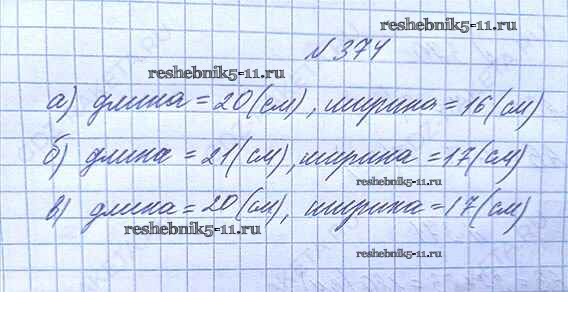 reshebnik5-11.ru
№ 374
reshebnik5-11.ru
а) длина = 20 (см), ширина = 16 (см)
б) длина = 21 (см), ширина = 17 (см)
reshebnik5-11.ru
в) длина = 20 (см), ширина = 17 (см)
reshebnik5-11.ru
reshebnik5-11.ru